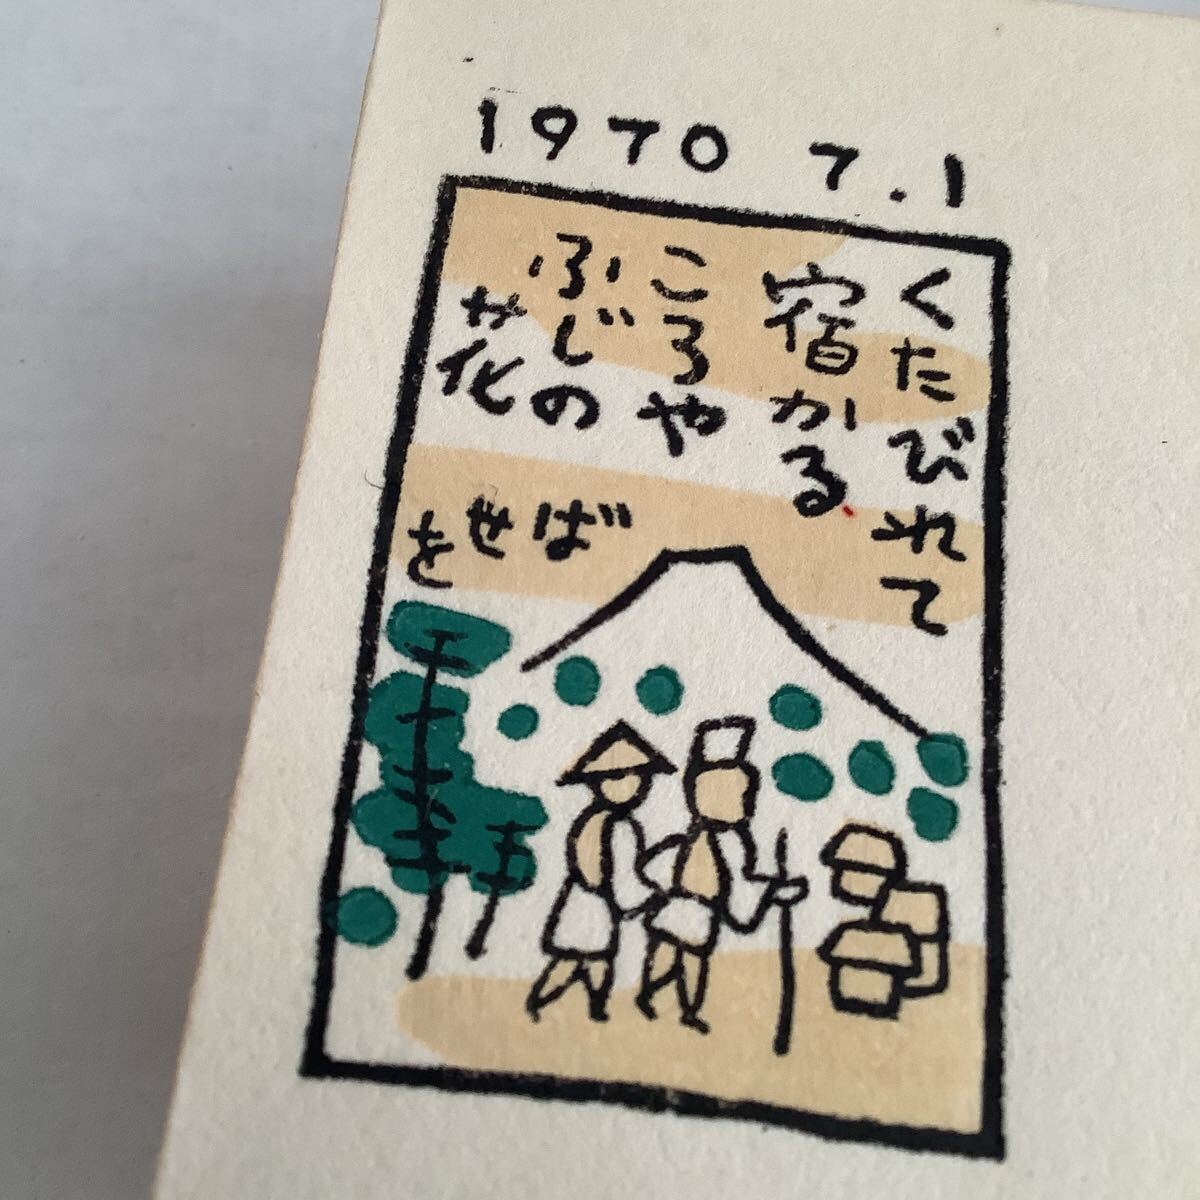 1970 7.1
くたびれて
宿かる
ころや
ふじの
花
ばせを